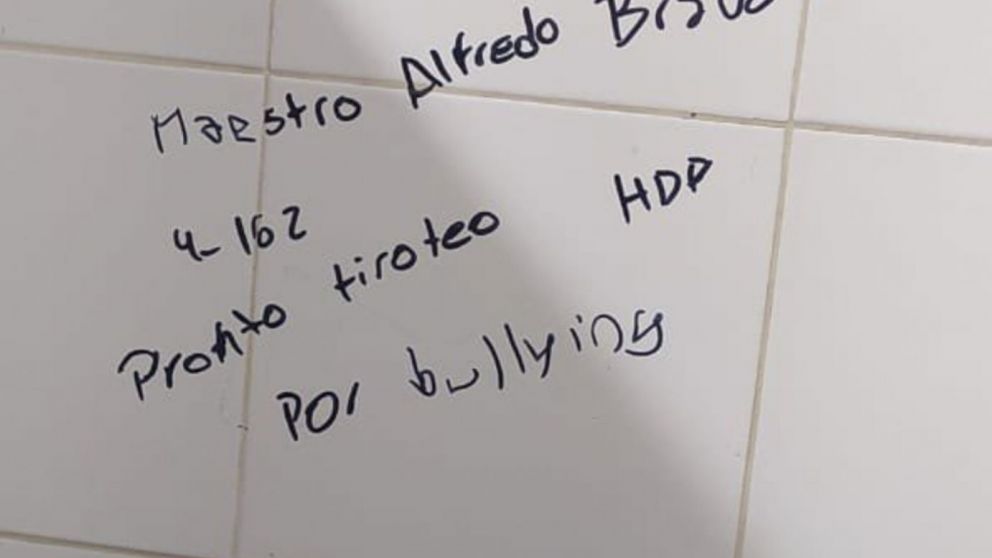 Maestro Alfredo Bravo
4-162
Pronto tiroteo HDP
Por bullying